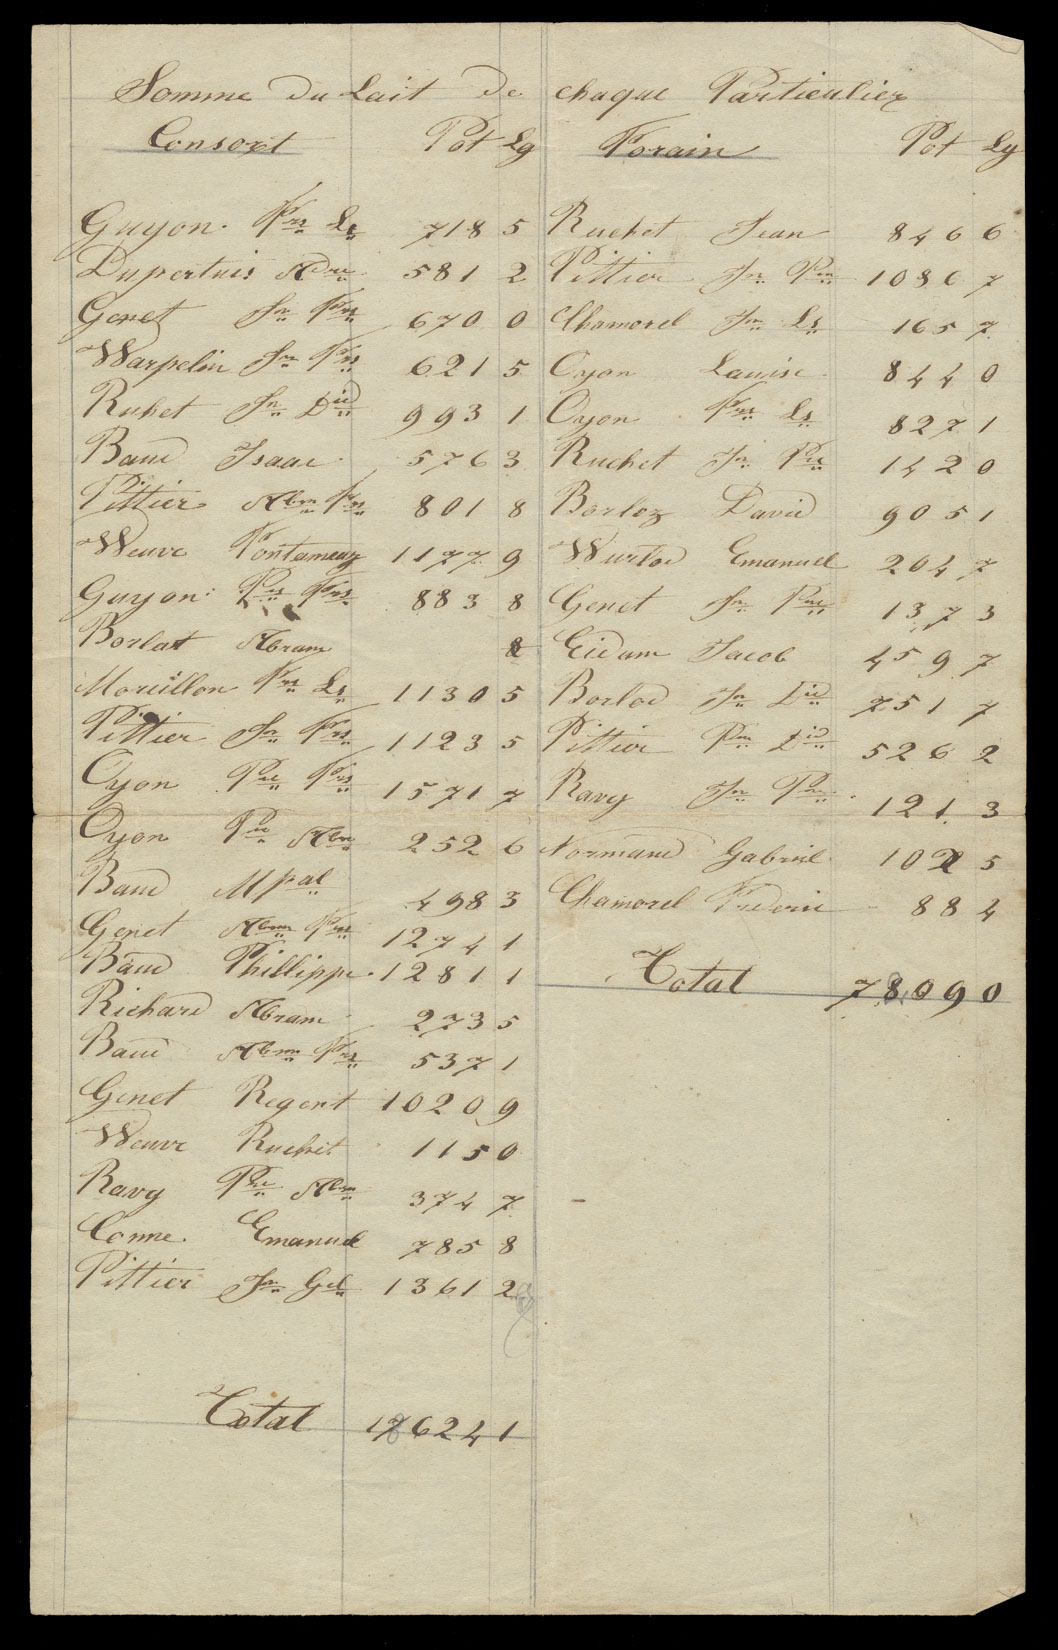 Somme du Lait de chaque Particulier
Consort Pot Lg Forain Pot Lg
Guyon. Frs Ls 718 5
Dupertuis Adre 581 2
Genet Jn Frs 670 0
Warpelin Jn Frs 621 5
Ruhet Jn Did 993 1
Baud Isaac 576 3
Pittier Abm Frs 801 8
Weuve Fontameaz 1177 9
Guyon: Prs Frs 883 8
Borlat Abram 8
Moreillon Frs Ls 1130 5
Pittier Jn Frs 1123 5
Oyon Pre Frs 1571 7
Oyon Pre Abm 252 6
Baud Mpal 498 3
Genet Abm Frs 1274 1
Baud Phillippe 1281 1
Richard Abram 273 5
Baud Abm Frs 537 1
Genet Regent 1020 9
Weuve Ruchet 115 0
Ravy Pre Abm 374 7
Conne. Emanuel 785 8
Pittier Jn Gel 1361 2
Total 17624 1
Ruchet Jean 846 6
Pittier Jn Pre 1086 7
Chamorel Jn Ls 165 7
Oyon Lauise 844 0
Oyon Frs Ls 827 1
Ruchet Jn Pre 142 0
Borloz David 905 1
Wurlod Emanuel 204 7
Genet Jn Pre 137 3
Eidam Jacob 459 7
Borlod Jn Did 751 7
Pittier Pre Did 526 2
Ravy Jn Pre 121 3
Normand Gabriel 102 5
Chamorel Frederic 88 4
Total 7809 0